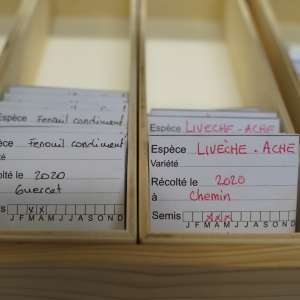 Espèce Fenouil condiment
èce Fenouil condiment
té
olté le 2020
Guercet
is X X
J F M A M J J A S O N D
Espèce LIVÈCHE - ACHE
Espèce LIVÈCHE - ACHE
Variété
Récolté le 2020
à Chemin
Semis X X X
J F M A M J J A S O N D